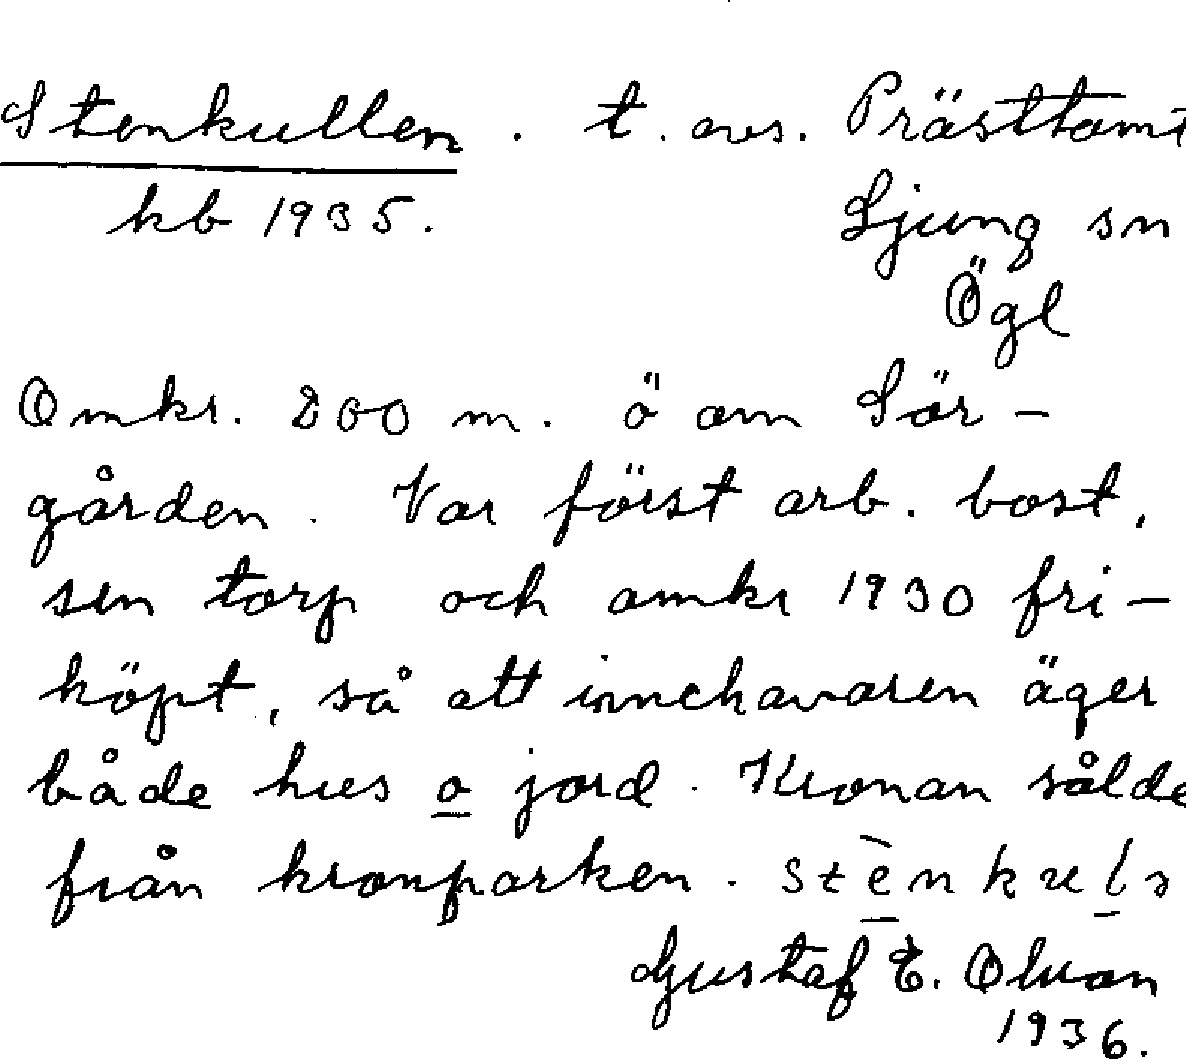 Stenkullen . t. avs. Prästtomt
kb 1935. Ljung sn
Ögl
Omkr. 800 m. ö om Sör-
gården. Var först arb. bost,
sen torp och omkr 1930 fri-
köpt, så att innehavaren äger
både hus o jord. Kronan sålde
från kronparken.
Gustaf E. Olson
1936.